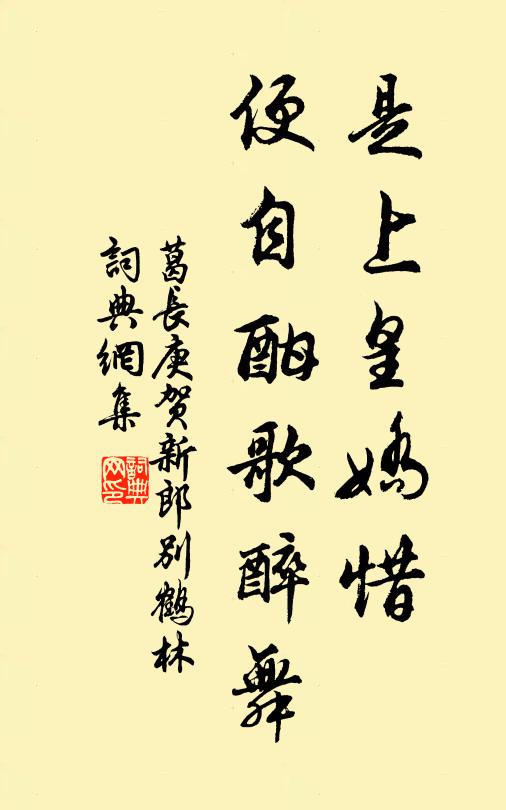 是上皇嬌惜
便自酣歌醉舞
葛長庚賀新郎別鶴林
詞典網集
詞典
网印